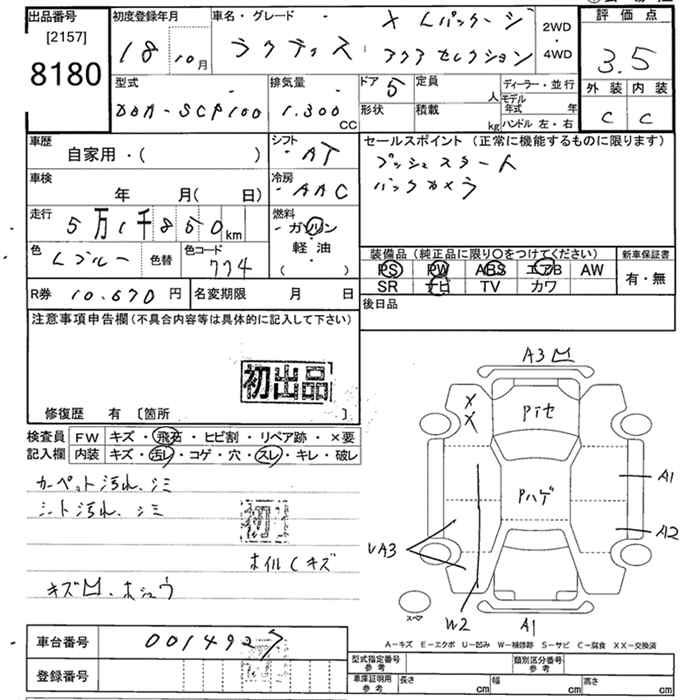 出品番号
[2157]
8180
初度登録年月
18 10月
車名・グレード
ラクティス
X Lパッケージ
アクアセレクション
2WD
・
4WD
評価点
3.5
外装 内装
C C
型式
DBA-SCP100
排気量
1.300
CC
ドア 5
定員
人
形状
積載
kg
ディーラー・並行
モデル年式 年
ハンドル 左・右
車歴
自家用・( )
シフト
AT
セールスポイント (正常に機能するものに限ります)
プッシュスタート
バックカメラ
車検
年 月( 日)
冷房
AAC
走行
5万1千850km
燃料
・ガソリン
軽油
( )
色
Lブルー
色替
色コード
774
装備品(純正品に限り○をつけてください)
PS PW ABS エアB AW
SR ナビ TV カワ
新車保証書
有・無
R券 10.670円
名変期限 月 日
後日品
注意事項申告欄(不具合内容等は具体的に記入して下さい)
初出品
修復歴 有 [箇所 ]
検査員
記入欄
FW キズ・飛石・ヒビ割・リペア跡・×要
内装 キズ・汚レ・コゲ・穴・スレ・キレ・破レ
カーペット汚れ、シミ
シート汚れ、シミ
初
ホイルCキズ
キズ凹・ホシュウ
A3凹
X
X
Pイセ
Pハゲ
A1
A2
UA3
W2
A1
スペア
A−キズ E−エクボ U−凹み W−補修跡 S−サビ C−腐食 XX−交換済
車台番号
0014927
登録番号
型式指定番号
参考
類別区分番号
参考
車庫証明用
参考
長さ cm
幅 cm
高さ cm